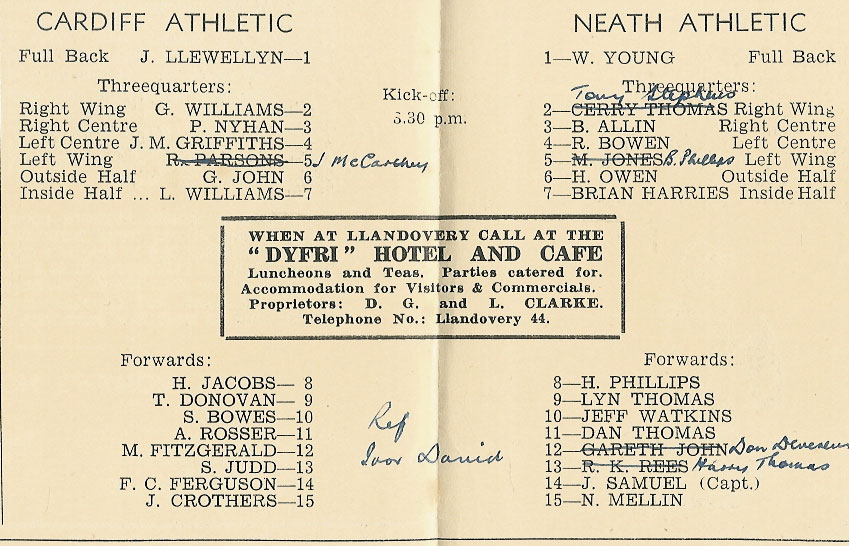 CARDIFF ATHLETIC
Full Back J. LLEWELLYN—1
Threequarters:
Right Wing G. WILLIAMS—2
Right Centre P. NYHAN—3
Left Centre J. M. GRIFFITHS—4
Left Wing R. PARSONS—5 J McCarthey
Outside Half G. JOHN 6
Inside Half ... L. WILLIAMS—7
Kick-off:
5.30 p.m.
NEATH ATHLETIC
1—W. YOUNG Full Back
Threequarters:
Tony Stephens
2—GERRY THOMAS Right Wing
3—B. ALLIN Right Centre
4—R. BOWEN Left Centre
5—M. JONES B. Phillips Left Wing
6—H. OWEN Outside Half
7—BRIAN HARRIES Inside Half
WHEN AT LLANDOVERY CALL AT THE
"DYFRI" HOTEL AND CAFE
Luncheons and Teas. Parties catered for.
Accommodation for Visitors & Commercials.
Proprietors: D. G. and L. CLARKE.
Telephone No.: Llandovery 44.
Forwards:
H. JACOBS— 8
T. DONOVAN— 9
S. BOWES—10
A. ROSSER—11
M. FITZGERALD—12
S. JUDD—13
F. C. FERGUSON—14
J. CROTHERS—15
Ref
Ivor David
Forwards:
8—H. PHILLIPS
9—LYN THOMAS
10—JEFF WATKINS
11—DAN THOMAS
12—GARETH JOHN Don Devereux
13—R. K. REES Harry Thomas
14—J. SAMUEL (Capt.)
15—N. MELLIN